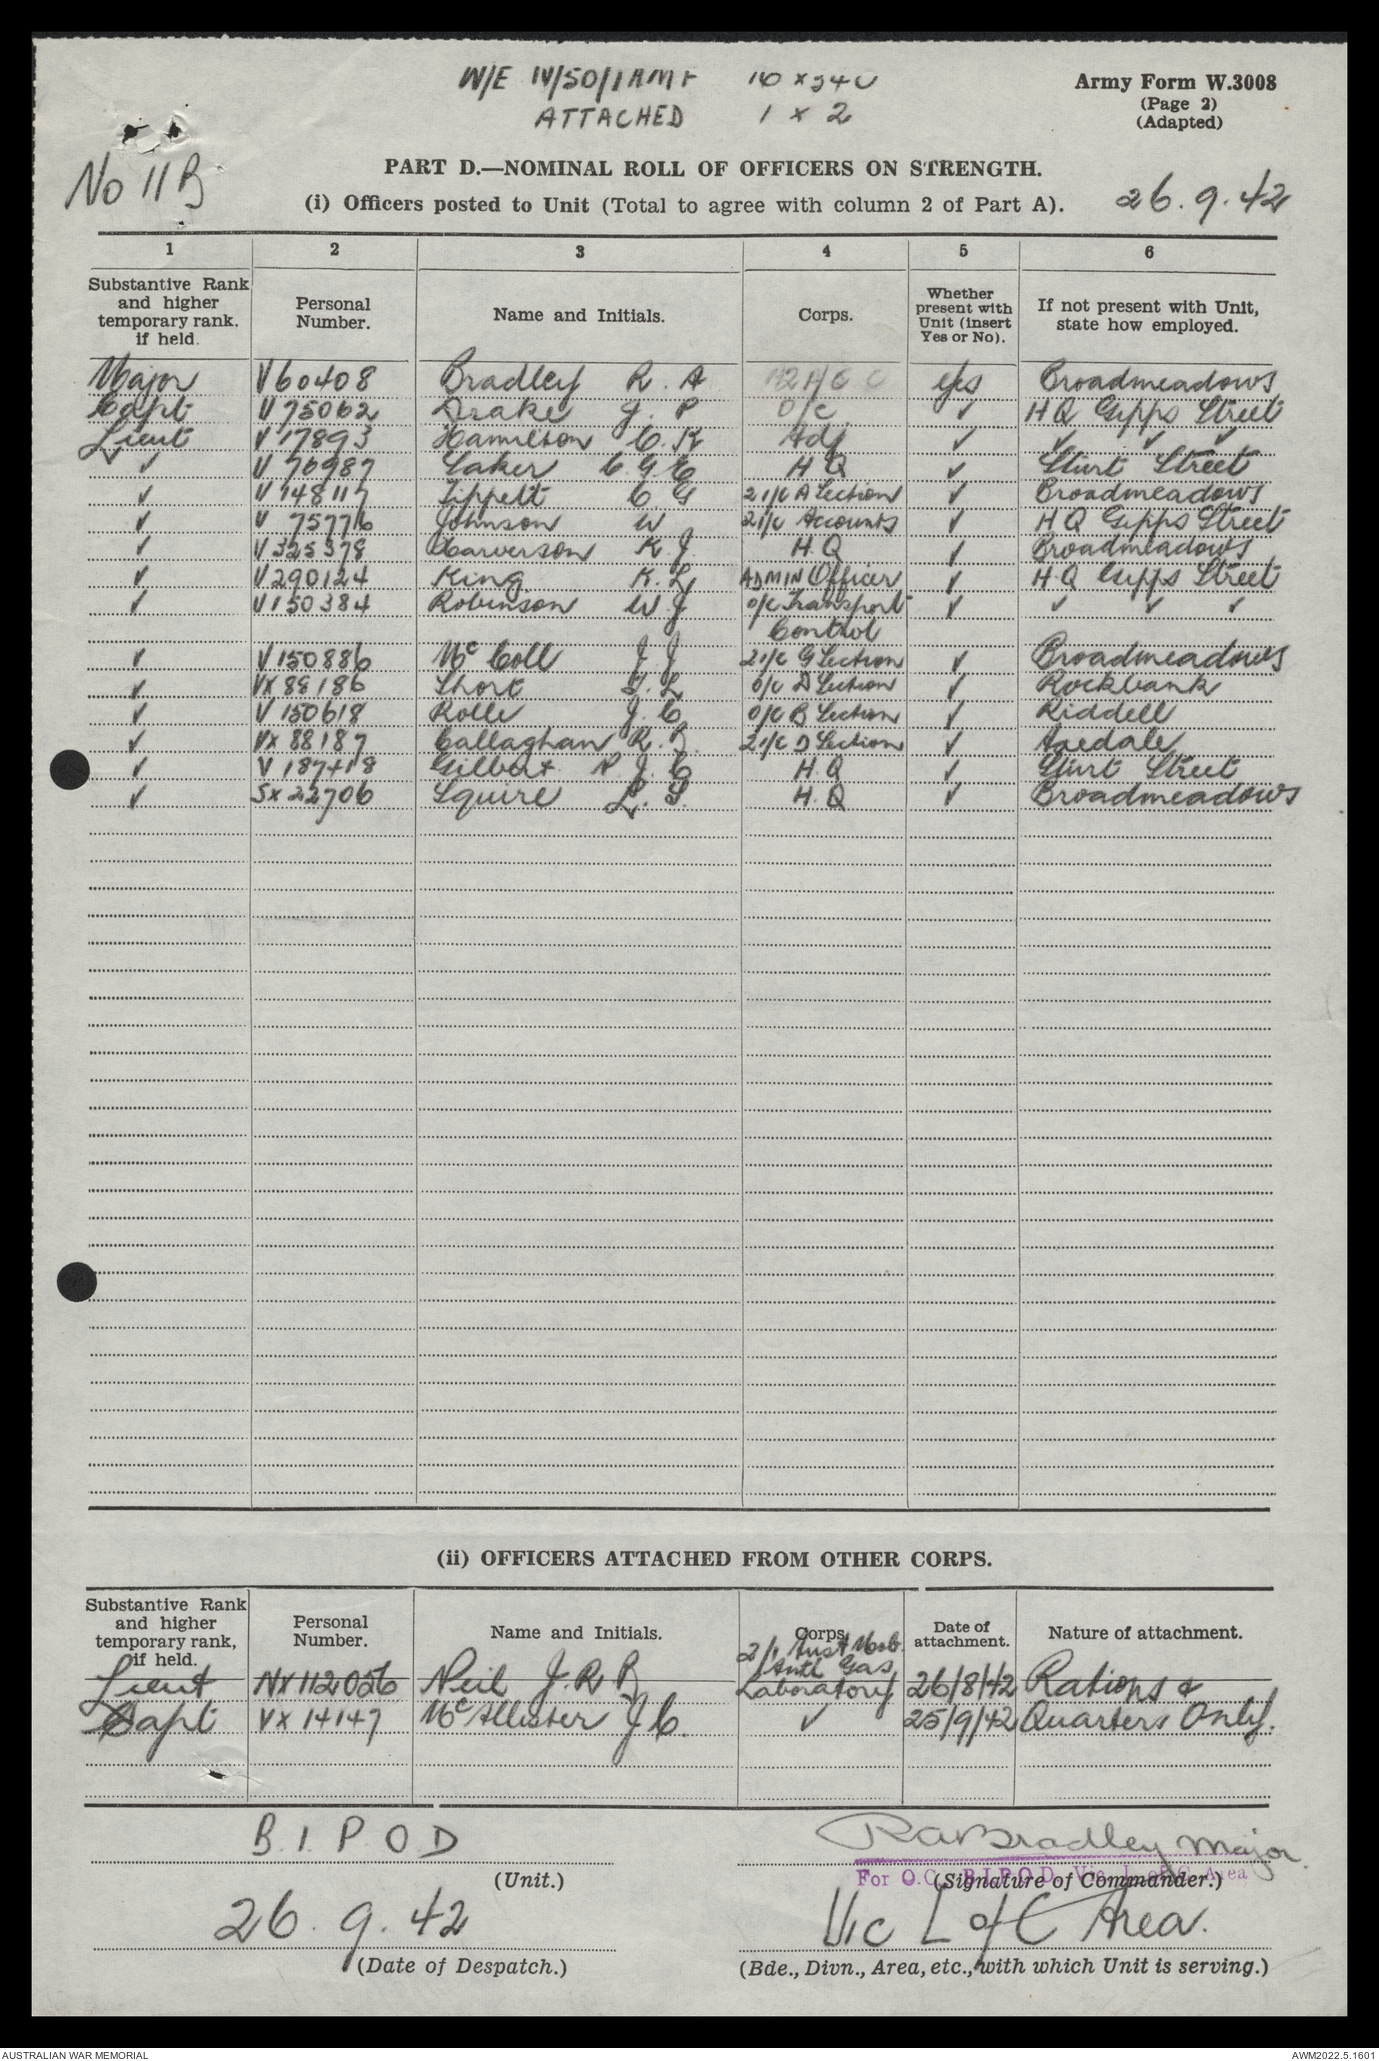 W/E IV/50/1 AMF 16 x 340
ATTACHED 1 x 2
Army Form W.3008
(Page 2)
(Adapted)
No 11B
PART D.—NOMINAL ROLL OF OFFICERS ON STRENGTH.
(i) Officers posted to Unit (Total to agree with column 2 of Part A).
26.9.42
1 2 3 4 5 6
Substantive Rank and higher temporary rank, if held.
Personal Number.
Name and Initials.
Corps.
Whether present with Unit (insert Yes or No).
If not present with Unit, state how employed.
Major V60408 Bradley R. A yes Broadmeadows
Capt V 75062 Drake J. P O/C ✓ H Q Gipps Street
Lieut V 17893 Hamilton C. K Adj ✓ ✓ ✓ ✓
✓ V 70987 Laker C. G. E H. Q ✓ Sturt Street
✓ V 148117 Tippett C G 2 i/c A Section ✓ Broadmeadows
✓ V 75776 Johnson W 2 i/c Accounts ✓ H Q Gipps Street
✓ V 325378 Harverson K. J. H. Q ✓ Broadmeadows
✓ V290124 King K. L. ADMIN Officer ✓ H. Q Gipps Street
✓ V150384 Robinson W. J O/C Transport ✓ ✓ ✓ ✓
Control
✓ V150886 McColl J J 2 i/c G Section ✓ Broadmeadows
✓ VX 88186 Short L O/C D Section ✓ Rockbank
✓ V 150618 Rolle J. C O/C B Section ✓ Riddell
✓ VX 88187 Callaghan R. 2 i/c D Section ✓ Axedale
✓ V 187418 Gilbert N. J. C H. Q ✓ Sturt Street
✓ SX 22706 Squire L. H. Q ✓ Broadmeadows
(ii) OFFICERS ATTACHED FROM OTHER CORPS.
Substantive Rank and higher temporary rank, if held.
Personal Number.
Name and Initials.
Corps.
Date of attachment.
Nature of attachment.
2/1 Aust Mob.
Anti Gas
Lieut NX112056 Neil J. R. B Laboratory 26/8/42 Rations &
Capt VX 14147 McAllister J C. ✓ 25/9/42 Quarters Only.
B. I. P. O. D
(Unit.)
RA Bradley Major.
For O.C. B.I.P.O.D. Vic. L. of C. Area
(Signature of Commander.)
26. 9. 42
(Date of Despatch.)
Vic L of C Area.
(Bde., Divn., Area, etc., with which Unit is serving.)
AUSTRALIAN WAR MEMORIAL
AWM2022.5.1601